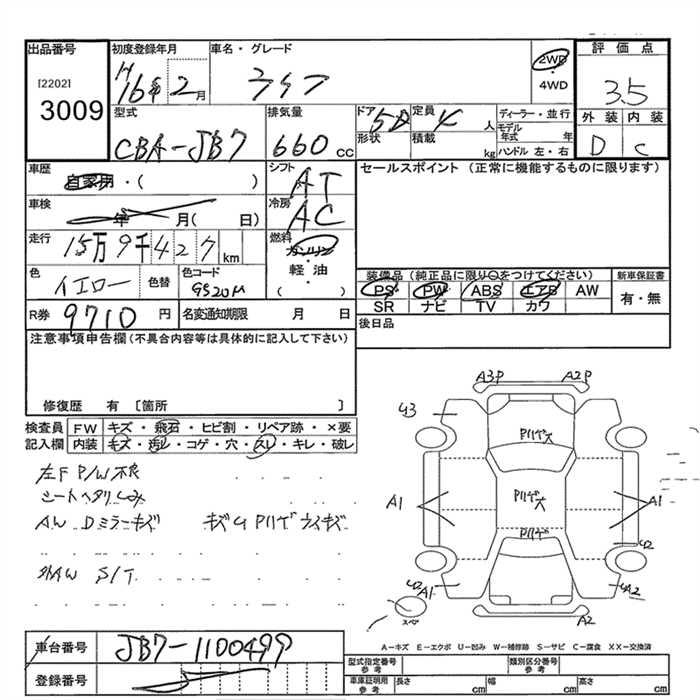 出品番号
[2202]
3009
初度登録年月
H16年2月
車名・グレード
ライフ
2WD
・
4WD
評価点
3.5
外装 内装
D C
型式
CBA-JB7
排気量
660 cc
ドア 5D
形状
定員 4 人
積載 kg
ディーラー・並行
モデル年式 年
ハンドル 左・右
車歴
自家用・( )
シフト
AT
車検
年 月( 日)
冷房
AC
走行
15万9千427km
燃料
ガソリン
・
軽油
・
( )
色
イエロー
色替
色コード
R券
9710円
名変通知期限 月 日
セールスポイント (正常に機能するものに限ります)
装備品 (純正品に限り○をつけてください)
新車保証書
PS PW ABS エアB AW
SR ナビ TV カワ
有・無
後日品
注意事項申告欄(不具合内容等は具体的に記入して下さい)
修復歴 有 〔箇所 〕
検査員
記入欄
FW キズ・飛石・ヒビ割・リペア跡・×要
内装 キズ・汚レ・コゲ・穴・スレ・キレ・破レ
左F P/W不良
シートヘタリ
AW Dミラーキズ
S/T
A3P A2P
U3
Pリペ大
A1 A1
A1
A2
スペア
A-キズ E-エクボ U-凹み W-補修跡 S-サビ C-腐食 XX-交換済
車台番号
JB7-1100499
登録番号
型式指定番号
参考
類別区分番号
参考
車庫証明用
参考
長さ cm 幅 cm 高さ cm